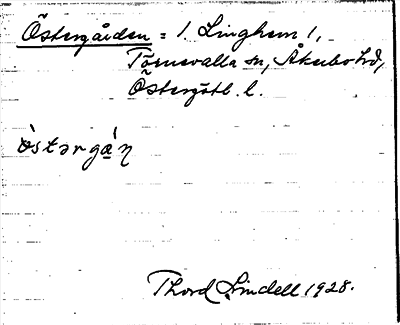 Östergården = 1 Linghem 1,
Törnevalla sn, Åkerbo hd,
Östergötl. l.
östərgá̠ṇ
Thord Lindell 1928.